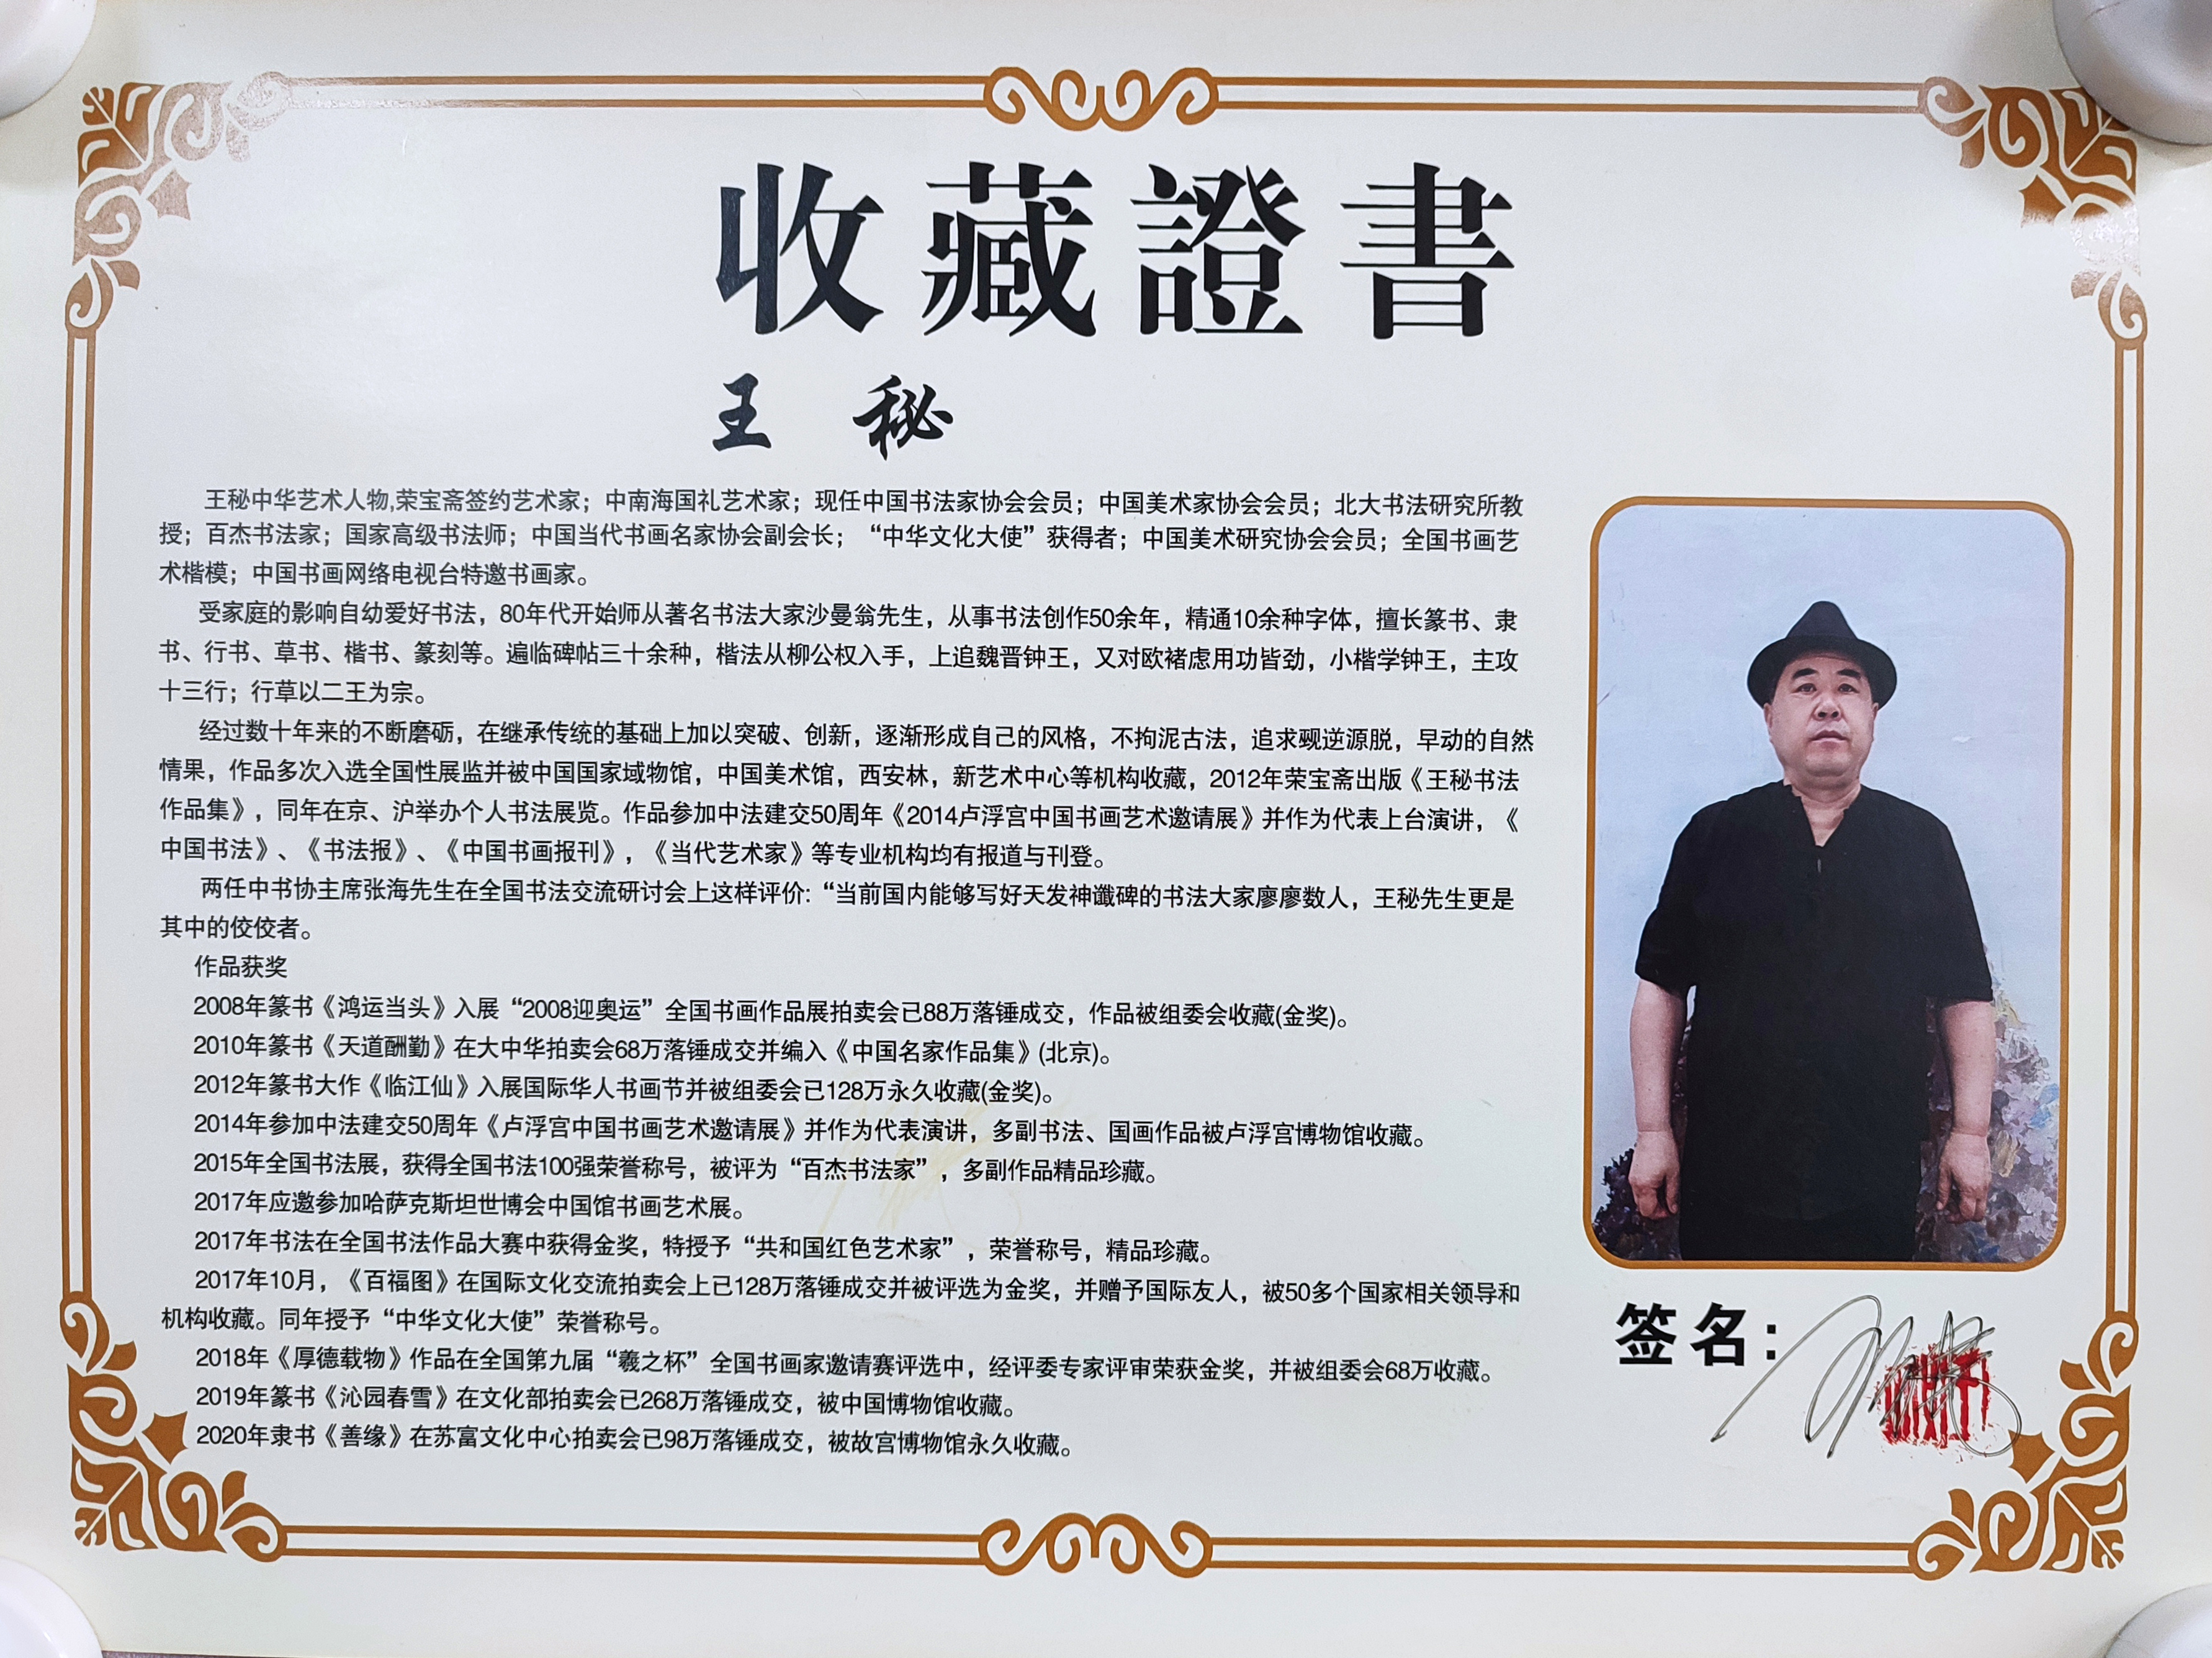 收藏證書
王 秘
王秘中华艺术人物,荣宝斋签约艺术家；中南海国礼艺术家；现任中国书法家协会会员；中国美术家协会会员；北大书法研究所教
授；百杰书法家；国家高级书法师；中国当代书画名家协会副会长；“中华文化大使”获得者；中国美术研究协会会员；全国书画艺
术楷模；中国书画网络电视台特邀书画家。
受家庭的影响自幼爱好书法，80年代开始师从著名书法大家沙曼翁先生，从事书法创作50余年，精通10余种字体，擅长篆书、隶
书、行书、草书、楷书、篆刻等。遍临碑帖三十余种，楷法从柳公权入手，上追魏晋钟王，又对欧褚虑用功皆劲，小楷学钟王，主攻
十三行；行草以二王为宗。
经过数十年来的不断磨砺，在继承传统的基础上加以突破、创新，逐渐形成自己的风格，不拘泥古法，追求觋逆源脱，早动的自然
情果，作品多次入选全国性展监并被中国国家域物馆，中国美术馆，西安林，新艺术中心等机构收藏，2012年荣宝斋出版《王秘书法
作品集》，同年在京、沪举办个人书法展览。作品参加中法建交50周年《2014卢浮宫中国书画艺术邀请展》并作为代表上台演讲，《
中国书法》、《书法报》、《中国书画报刊》，《当代艺术家》等专业机构均有报道与刊登。
两任中书协主席张海先生在全国书法交流研讨会上这样评价:“当前国内能够写好天发神谶碑的书法大家廖廖数人，王秘先生更是
其中的佼佼者。
作品获奖
2008年篆书《鸿运当头》入展“2008迎奥运”全国书画作品展拍卖会已88万落锤成交，作品被组委会收藏(金奖)。
2010年篆书《天道酬勤》在大中华拍卖会68万落锤成交并编入《中国名家作品集》(北京)。
2012年篆书大作《临江仙》入展国际华人书画节并被组委会已128万永久收藏(金奖)。
2014年参加中法建交50周年《卢浮宫中国书画艺术邀请展》并作为代表演讲，多副书法、国画作品被卢浮宫博物馆收藏。
2015年全国书法展，获得全国书法100强荣誉称号，被评为“百杰书法家”，多副作品精品珍藏。
2017年应邀参加哈萨克斯坦世博会中国馆书画艺术展。
2017年书法在全国书法作品大赛中获得金奖，特授予“共和国红色艺术家”，荣誉称号，精品珍藏。
2017年10月，《百福图》在国际文化交流拍卖会上已128万落锤成交并被评选为金奖，并赠予国际友人，被50多个国家相关领导和
机构收藏。同年授予“中华文化大使”荣誉称号。
2018年《厚德载物》作品在全国第九届“羲之杯”全国书画家邀请赛评选中，经评委专家评审荣获金奖，并被组委会68万收藏。
2019年篆书《沁园春雪》在文化部拍卖会已268万落锤成交，被中国博物馆收藏。
2020年隶书《善缘》在苏富文化中心拍卖会已98万落锤成交，被故宫博物馆永久收藏。
签名：